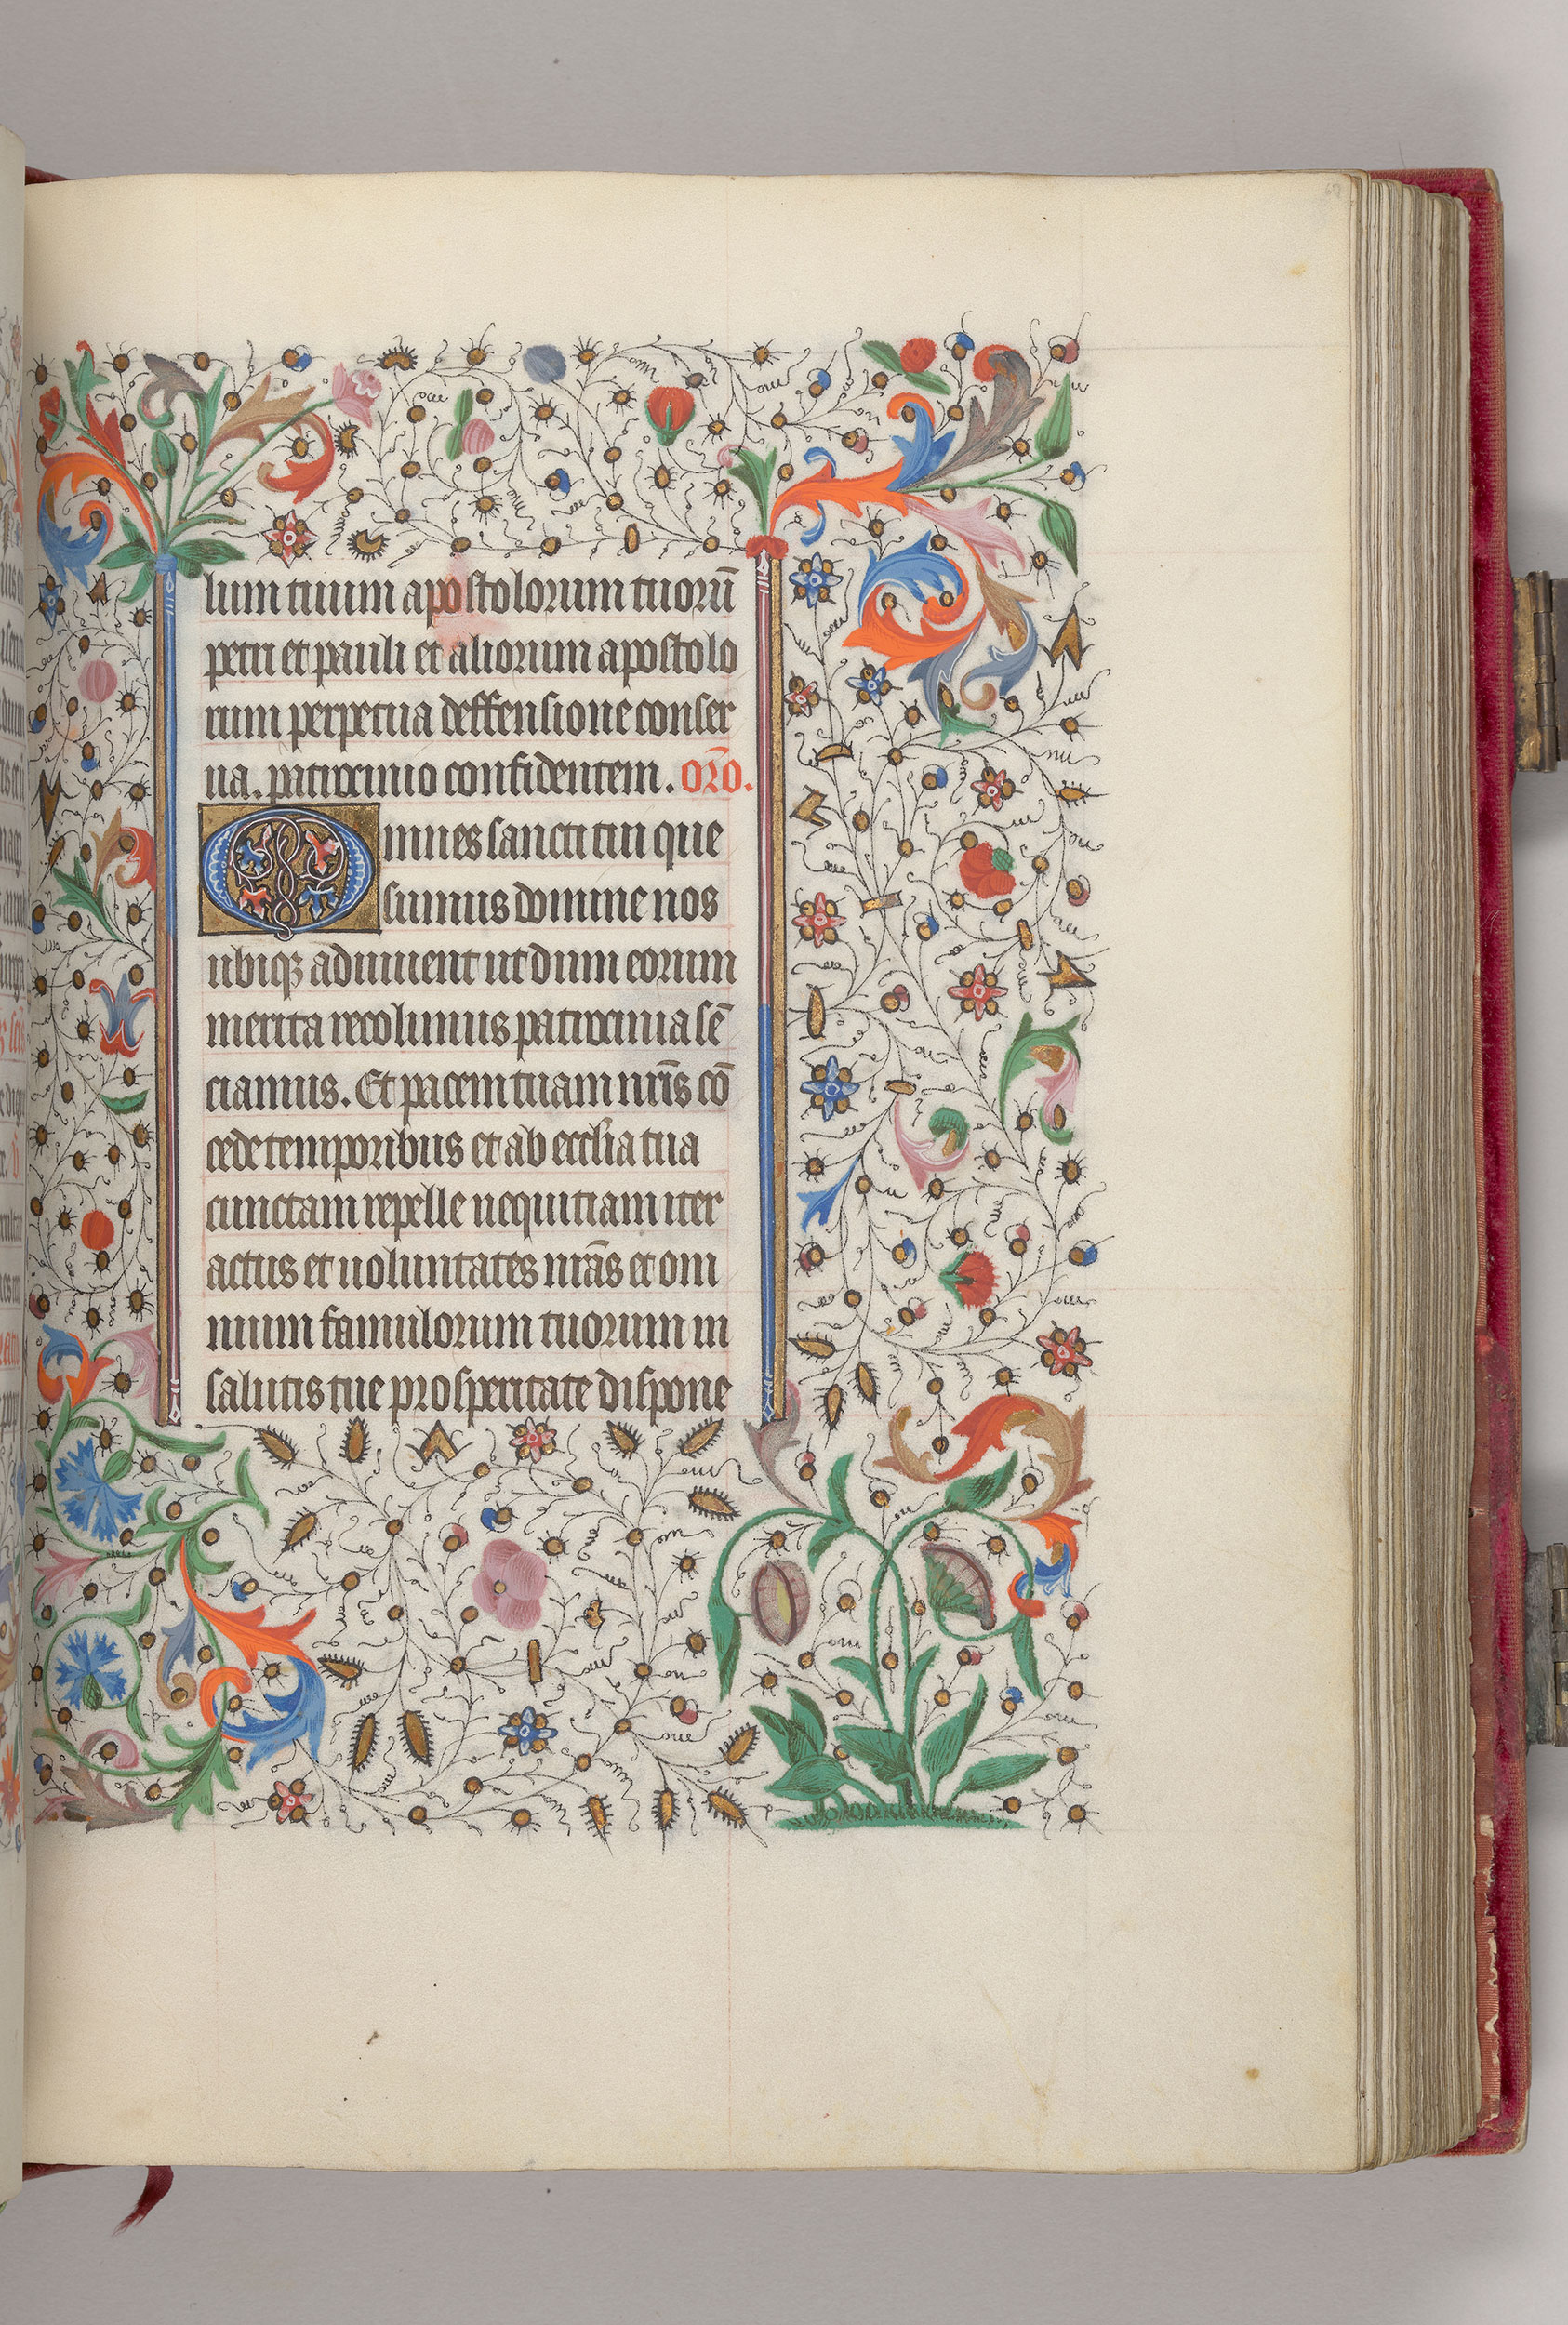 lum tuum apostolorum tuorū
petri et pauli et aliorum apostolo
rum perpetua deffensione conser
ua. patrocinio confidentem. orō.
Omnes sancti tui que
sumus domine nos
ubiqꝫ adiuuent ut dum eorum
merita recolimus patrocinia sē
ciamus. Et pacem tuam nrīs cō
cede temporibus et ab ecclīa tua
cunctam repelle nequitiam iter
actus et uoluntates nrās et om
nium famulorum tuorum in
salutis tue prosperitate dispone